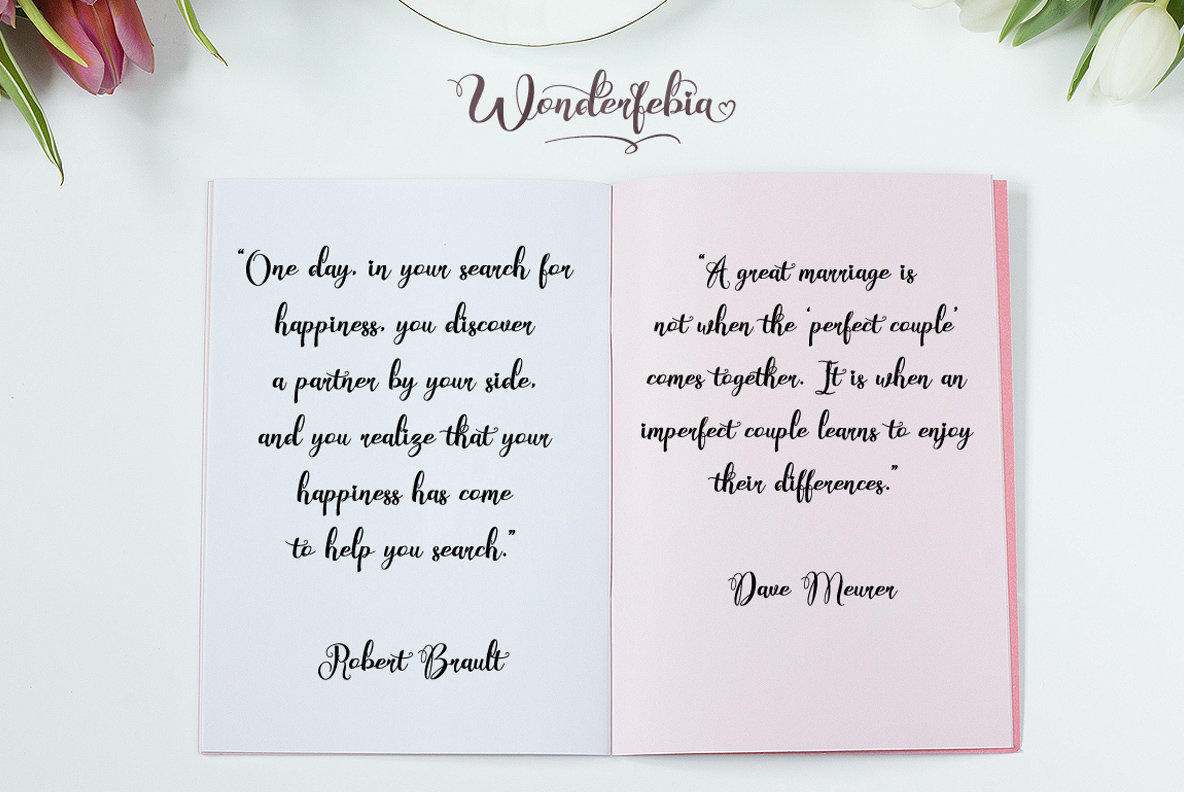 Wonderfebia
“One day, in your search for
happiness, you discover
a partner by your side,
and you realize that your
happiness has come
to help you search.”
Robert Brault
“A great marriage is
not when the ‘perfect couple’
comes together. It is when an
imperfect couple learns to enjoy
their differences.”
Dave Meurer